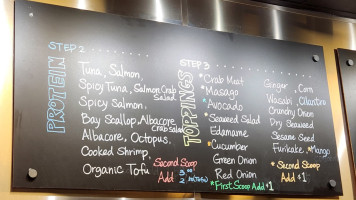 STEP 2
PROTEIN
Tuna, Salmon,
Spicy Tuna, Salmon, Crab Salad
Spicy Salmon,
Bay Scallop, Albacore,
Crab Salad
Albacore, Octopus,
Cooked Shrimp,
Organic Tofu
Second Scoop
Add
STEP 3
TOPPINGS
*Crab Meat
*Masago
*Avocado
*Seaweed Salad
Edamame
*Cucumber
Green Onion
Red Onion
*First Scoop Add $1
Ginger, Corn
Wasabi, Cilantro
Crunchy Onion
Dry Seaweed
Sesame Seed
Furikake *Mango
*Second Scoop
Add $1